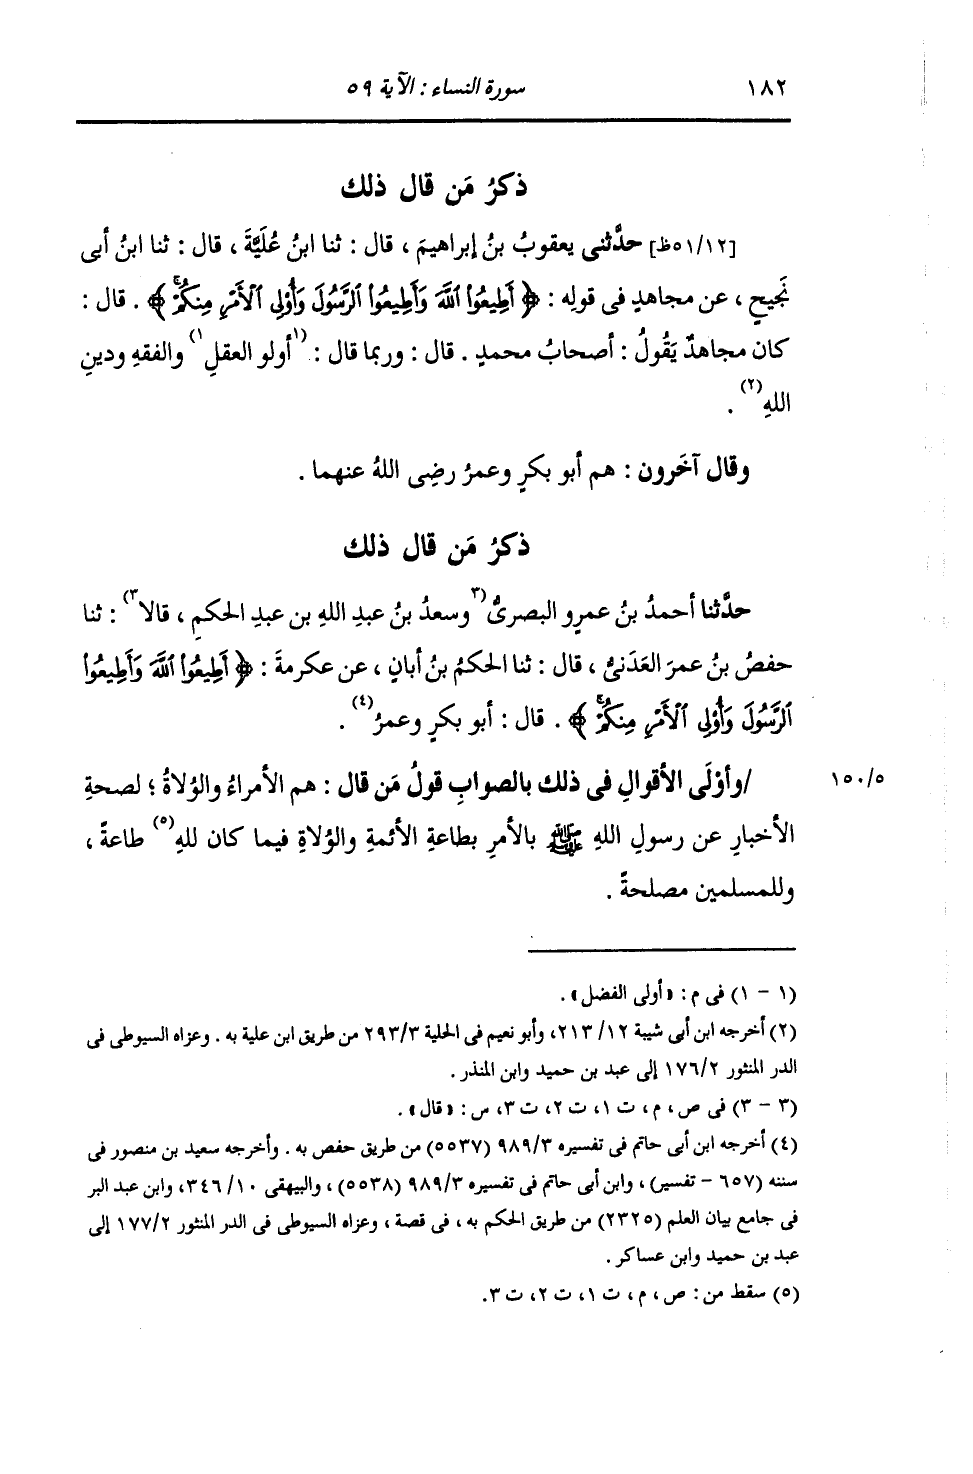 ١٨٢ سورة النساء : الآية ٥٩
ذكرُ مَن قال ذلك
[٥١/١٢ظ] حدَّثنى يعقوبُ بنُ إبراهيمَ ، قال : ثنا ابنُ عُلَيَّةَ ، قال : ثنا ابنُ أبى
نَجيحٍ ، عن مجاهدٍ فى قولِه : ﴿ أَطِيعُوا۟ ٱللَّهَ وَأَطِيعُوا۟ ٱلرَّسُولَ وَأُو۟لِى ٱلْأَمْرِ مِنكُمْۖ ﴾ . قال :
كان مجاهدٌ يَقُولُ : أصحابُ محمدٍ . قال : وربما قال : (١أولو العقلِ١) والفقهِ ودينِ
اللهِ(٢) .
وقال آخَرون : هم أبو بكرٍ وعمرُ رضِى اللهُ عنهما .
ذكرُ مَن قال ذلك
حدَّثنا أحمدُ بنُ عمرٍو البصرىُّ (٣وسعدُ بنُ عبدِ اللهِ بن عبدِ الحكمِ ، قالا٣) : ثنا
حفصُ بنُ عمرَ العَدَنىُّ ، قال : ثنا الحكمُ بنُ أبانٍ ، عن عكرمةَ : ﴿ أَطِيعُوا۟ ٱللَّهَ وَأَطِيعُوا۟
ٱلرَّسُولَ وَأُو۟لِى ٱلْأَمْرِ مِنكُمْۖ ﴾ . قال : أبو بكرٍ وعمرُ(٤) .
١٥٠/٥ /وأوْلَى الأقوالِ فى ذلك بالصوابِ قولُ مَن قال : هم الأمراءُ والوُلاةُ ؛ لصحةِ
الأخبارِ عن رسولِ اللهِ ﷺ بالأمرِ بطاعةِ الأئمةِ والوُلاةِ فيما كان للهِ(٥) طاعةً ،
وللمسلمين مصلحةً .
(١ - ١) فى م : « أولى الفضل » .
(٢) أخرجه ابن أبى شيبة ٢١٣/١٢، وأبو نعيم فى الحلية ٢٩٣/٣ من طريق ابن علية به . وعزاه السيوطى فى
الدر المنثور ١٧٦/٢ إلى عبد بن حميد وابن المنذر .
(٣ - ٣) فى ص ، م ، ت ١، ت ٢، ت ٣، س : « قال » .
(٤) أخرجه ابن أبى حاتم فى تفسيره ٩٨٩/٣ (٥٥٣٧) من طريق حفص به . وأخرجه سعيد بن منصور فى
سننه (٦٥٧ - تفسير) ، وابن أبى حاتم فى تفسيره ٩٨٩/٣ (٥٥٣٨) ، والبيهقى ٣٤٦/١٠، وابن عبد البر
فى جامع بيان العلم (٢٣٢٥) من طريق الحكم به ، فى قصة ، وعزاه السيوطى فى الدر المنثور ١٧٧/٢ إلى
عبد بن حميد وابن عساكر .
(٥) سقط من : ص ، م ، ت ١، ت ٢، ت ٣.